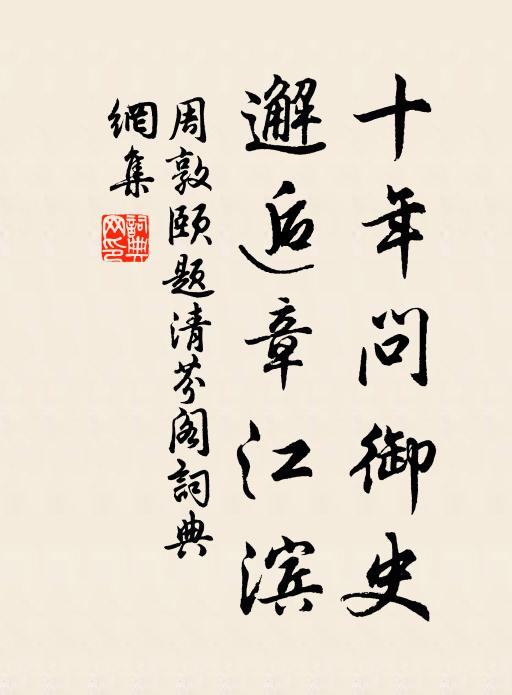 十年问御史
邂逅章江滨
周敦颐题清芬阁詞典
網集
詞典
网印